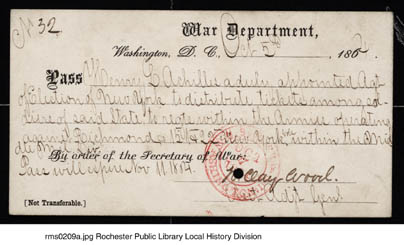 No 32
War Department,
Washington, D. C. Oct 5th, 186
Pass Henry C Achilles a duly appointed Agt
of Election of New York to distribute tickets among sol-
diers of said State to vote within the Armies operating
against Richmond 15th & 22 New York within the
Pass will expire Nov 11. 1864.
By order of the Secretary of War:
Clay Wood.
Adjt Genl.
[Not Transferable.]
rms0209a.jpg Rochester Public Library Local History Division